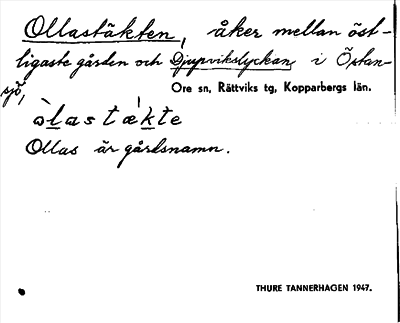 Ollastäkten, åker mellan öst-
ligaste gården och Djupvikslyckan i Östan-
sjö,
Ore sn, Rättviks tg, Kopparbergs län.
òlas tǽkte
Ollas är gårdsnamn.
THURE TANNERHAGEN 1947.